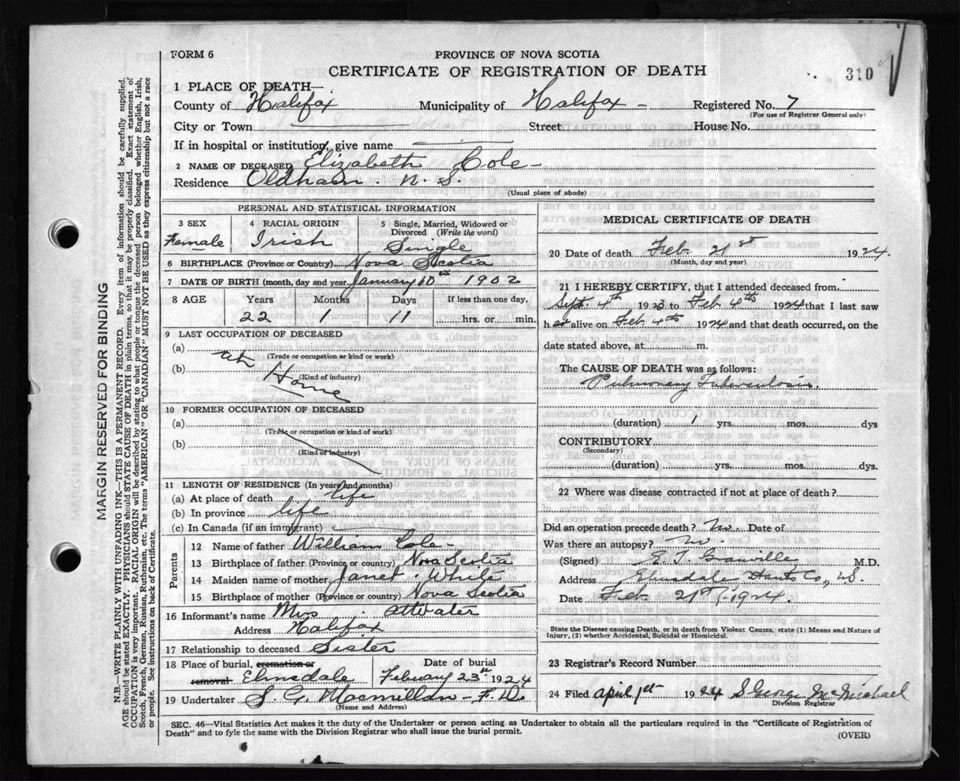 FORM 6
PROVINCE OF NOVA SCOTIA
CERTIFICATE OF REGISTRATION OF DEATH
310
1 PLACE OF DEATH—
County of Halifax Municipality of Halifax – Registered No. 7
(For use of Registrar General only)
City or Town Street House No.
If in hospital or institution, give name
2 NAME OF DECEASED Elizabeth Cole –
Residence Oldham. N. S.
(Usual place of abode)
MARGIN RESERVED FOR BINDING
N.B.—WRITE PLAINLY WITH UNFADING INK—THIS IS A PERMANENT RECORD. Every item of information should be carefully supplied.
AGE should be stated EXACTLY. PHYSICIANS should STATE CAUSE OF DEATH in plain terms, so that it may be properly classified. Exact statement of
OCCUPATION is very important. RACIAL ORIGIN will be described by stating to what people or tongue the deceased person belonged whether English, Irish,
Scotch, French, German, Russian, Ruthenian, etc. The terms "AMERICAN" or "CANADIAN" MUST NOT BE USED as they express citizenship but not a race
or people. See instructions on back of Certificate.
PERSONAL AND STATISTICAL INFORMATION
3 SEX
Female
4 RACIAL ORIGIN
Irish
5 Single, Married, Widowed or
Divorced (Write the word)
Single
6 BIRTHPLACE (Province or Country) Nova Scotia
7 DATE OF BIRTH (month, day and year) January 10th 1902
8 AGE Years Months Days If less than one day,
22 1 11 hrs. or min.
9 LAST OCCUPATION OF DECEASED
(a) at
(Trade or occupation or kind or work)
(b) Home
(Kind of industry)
10 FORMER OCCUPATION OF DECEASED
(a)
(Trade or occupation or kind of work)
(b)
(Kind of industry)
11 LENGTH OF RESIDENCE (In years and months)
(a) At place of death life
(b) In province life
(c) In Canada (if an immigrant)
Parents
12 Name of father William Cole –
13 Birthplace of father (Province or Country) Nova Scotia
14 Maiden name of mother Janet White
15 Birthplace of mother (Province or Country) Nova Scotia
16 Informant's name Mrs Attwater
Address Halifax
17 Relationship to deceased Sister
18 Place of burial, cremation or
removal Elmsdale
Date of burial
February 23rd 1924
19 Undertaker S. G. Macmillan – F. D.
(Name and Address)
MEDICAL CERTIFICATE OF DEATH
20 Date of death Feb 21st 1924.
(Month, day and year)
21 I HEREBY CERTIFY, that I attended deceased from
Sept 4th 1923 to Feb 4th 1924 that I last saw
her alive on Feb 4th 1924 and that death occurred, on the
date stated above, at m.
The CAUSE OF DEATH was as follows:
Pulmonary Tuberculosis.
(duration) 1 yrs. mos. dys
CONTRIBUTORY
(Secondary)
(duration) yrs. mos. dys.
22 Where was disease contracted if not at place of death?
Did an operation precede death? No. Date of
Was there an autopsy? No.
(Signed) E. T. Granville M.D.
Address Elmsdale Hants Co, N.S.
Date Feb 21st, 1924.
State the Disease causing Death, or in death from Violent Causes, state (1) Means and Nature of
Injury, (2) whether Accidental, Suicidal or Homicidal.
23 Registrar's Record Number
24 Filed April 1st 1924 S George McMichael
Division Registrar
SEC. 46—Vital Statistics Act makes it the duty of the Undertaker or person acting as Undertaker to obtain all the particulars required in the "Certificate of Registration of
Death" and to fyle the same with the Division Registrar who shall issue the burial permit.
(OVER)